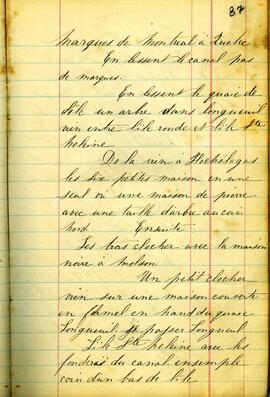 37
Marques de Montreal à Quebec
En lessent le canal pas
de marques.
En lessent le quaie de
l'ile un arbre dans longueuil
vien entre l'ile ronde et l'ile Ste
heleine
De la vien a Hochélagas
les six petites maison en une
seul ou une maison de pierre
avec une talle d'arbre au can
nord. Ensuite
Les trois clocher avec la maison
noire à molson.
Un petit clocher
vien sur une maison couverte
en en haud du quaie
Longueuil, passer Longueuil.
L'ile Ste heleine avec les
du canal ensemple
coin d'un bas de l'ile